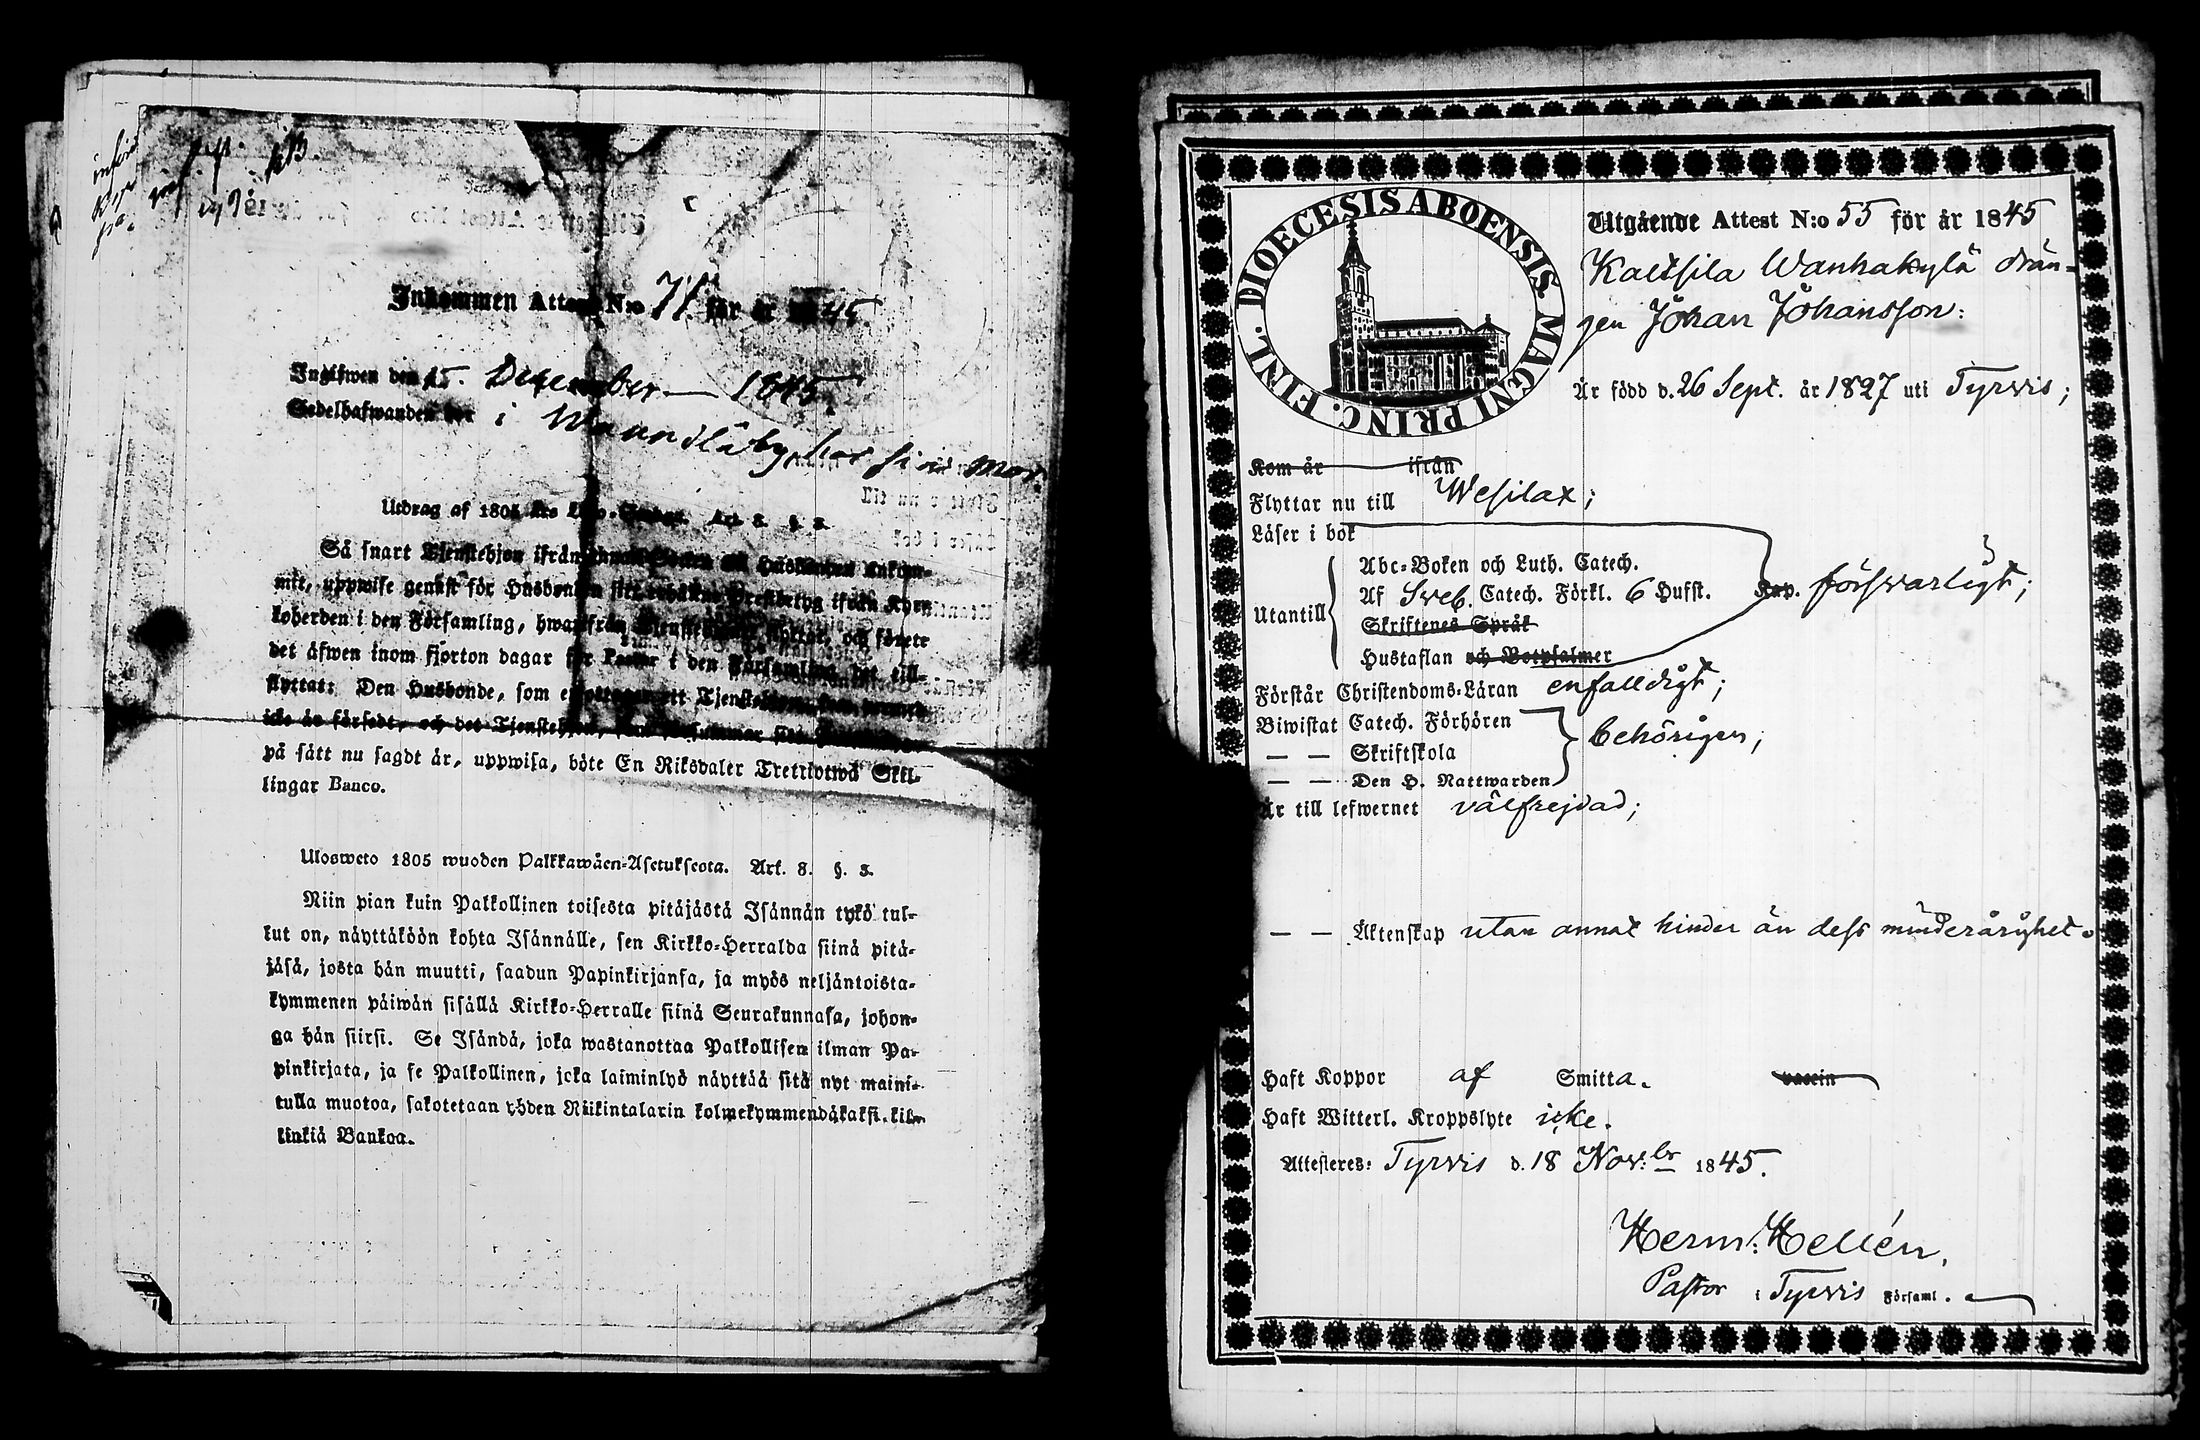 införd
Inkommen Attest N:o 71. för år 1845.
Inlefwen den 15. December 1845.
Sedelhafwanden bor i Waundlåby, hos sin mor.
Utdrag af 1805 års Lego-Stadga. Art. 8. §. 3.
Så snart Tjenstehjon ifrån Husbonden ankom-
mit, uppwise genast för Husbonden sitt Prestbetyg ifrån Kyrc
koherden i den Församling, hwarifrån Tjenstehjonet flyttat, och förete
det äfwen inom fjorton dagar för Pastor i den Församling det till-
flyttat: Den Husbonde, som emottager ett Tjenstehjon,
icke är försedt, och det Tjenstehjon, som försummar
på sätt nu sagdt är, uppwisa, böte En Riksdaler Trettiotwå Skil-
lingar Banco.
Ulosweto 1805 wuoden Palkkawäen-Asetuksesta. Art. 8. §. 3.
Niin pian kuin Palkollinen toisesta pitäjästä Isännän tykö tul-
kut on, näyttäköön kohta Isännälle, sen Kirkko-Herralda siinä pitä-
jäsä, josta hän muutti, saadun Papinkirjansa, ja myös neljäntoista-
kymmenen päiwän sisällä Kirkko-Herralle siinä Seurakunnasa, johon-
ga hän siirsi. Se Isändä, joka wastanottaa Palkollisen ilman Pa-
pinkirjata, ja se Palkollinen, joka laiminlyö näyttää sitä nyt maini-
tulla muotoa, sakotetaan yhden Riikintalarin kolmekymmendäkaksi kil-
linkiä Bankoa.
DIOECESIS ABOENSIS. MAGNI PRINC. FINL.
Utgående Attest N:o 55 för år 1845
Kaltsila Wanhakylä drän-
gen Johan Johansson:
Är född d. 26 Sept. år 1827 uti Tyrvis;
Kom år ifrån
Flyttar nu till Wesilax;
Läser i bok
Abc-Boken och Luth. Catech.
Utantill Af Sveb. Catech. Förkl. 6 Hufst. Kap. försvarligt;
Skriftenes Språk
Hustaflan och Botpsalmer
Förstår Christendoms-Läran enfalldigt;
Biwistat Catech. Förhören
— — Skriftskola behörigen;
— — Den H. Nattwarden
Är till lefwernet välfrejdad;
— — Äktenskap utan annat hinder än dess minderårighet.
Haft Koppor af Smitta. vaccin
Haft Witterl. Kroppslyte icke.
Attesteres: Tyrvis d. 18 Nov:br 1845.
Herm: Hellén,
Pastor i Tyrvis Församl.